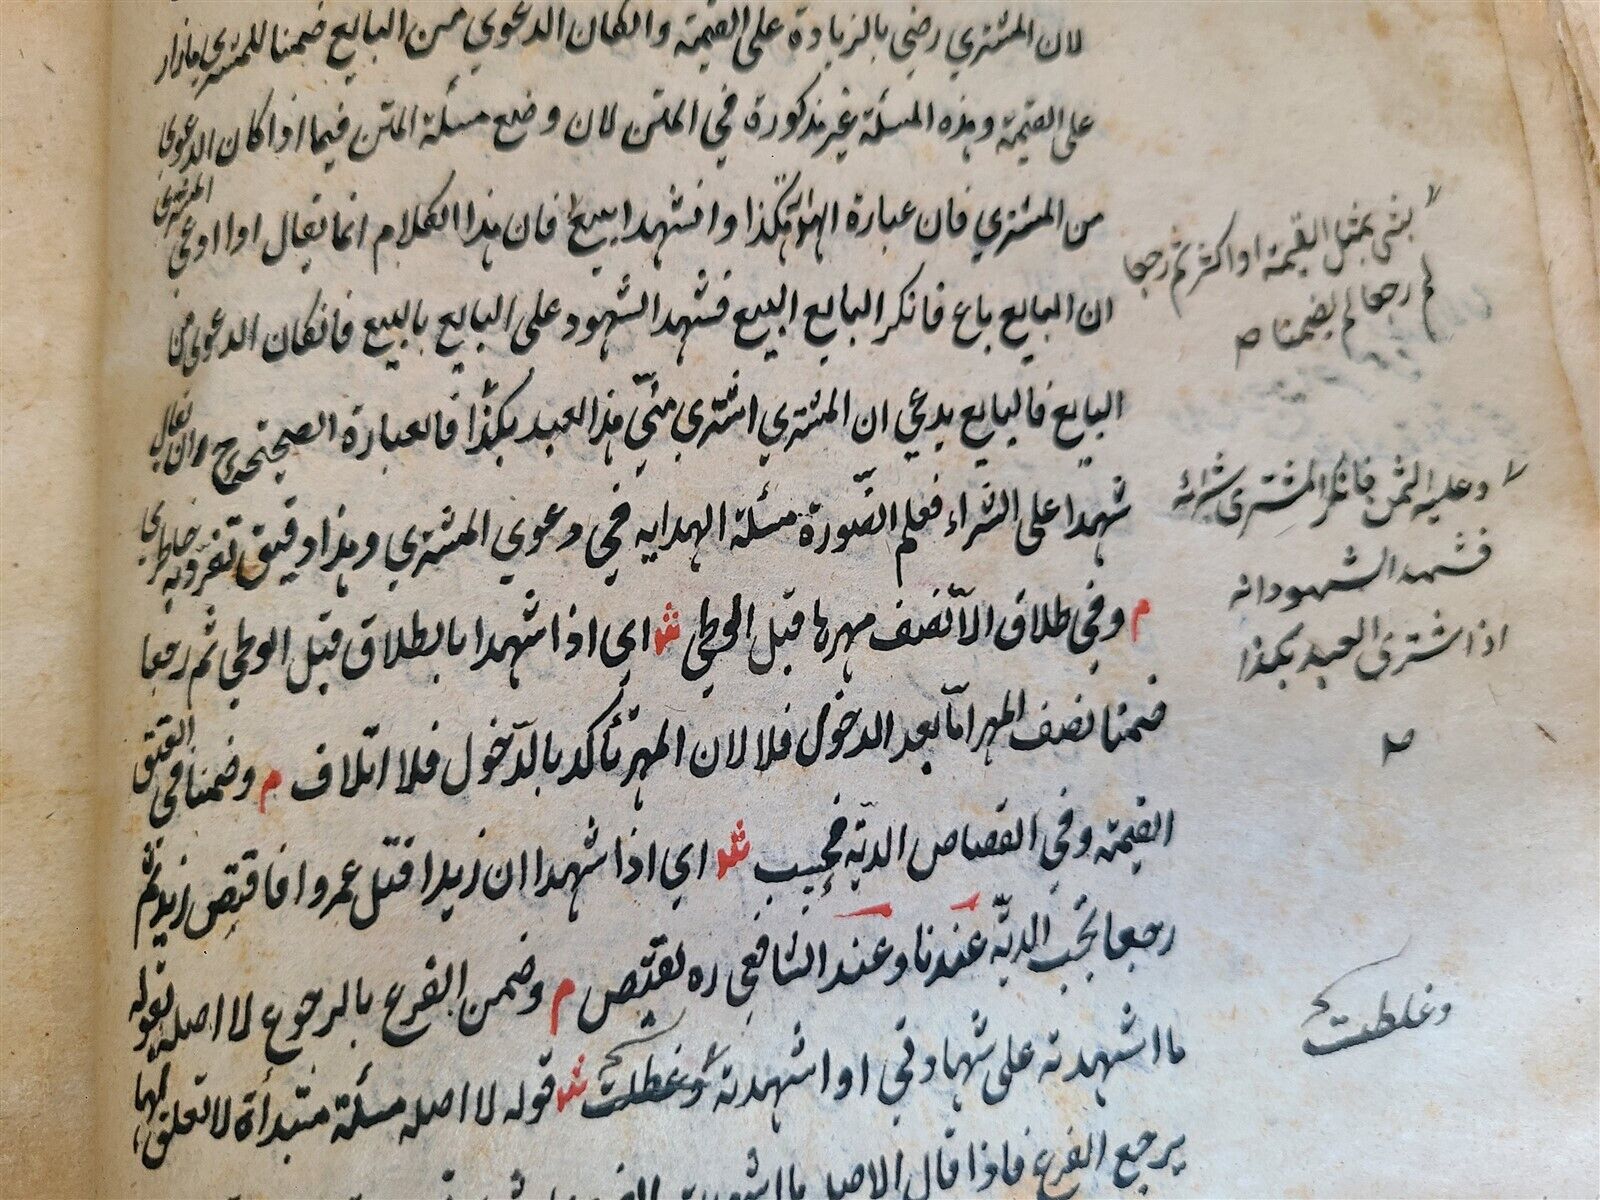 لان المشتري رضي بالزيادة على القيمة وان كان الدعوي من البايع ضمنا للمشتري ما زاد
على القيمة وهذه المسئلة غير مذكورة في المتن لان وضع مسئلة المتن فيما اذا كان الدعوي
من المشتري فان عبارة الهداية هكذا وان شهدا ببيع فان هذا الكلام انما يقال اذا ادعي المشتري
ان البايع باع فانكر البايع البيع فشهد الشهود على البايع بالبيع فان كان الدعوي من
البايع فالبايع يدعي ان المشتري اشتري منّي هذا العبد بكذا فالعبارة الصحيحة ح ان يقال
شهدا على الشراء فعلم الصّورة مسئلة الهدايه في دعوي المشتري وهذا دقيق تفرد به خاطري
م وفي طلاق الا نصف مهرها قبل الوطي ش اي اذا شهدا بالطلاق قبل الوطي ثم رجعا
ضمنا نصف المهر امّا بعد الدخول فلا لان المهر تأكد بالدّخول فلا اتلاف م وضمنا في العتق
القيمة وفي القصاص الديّة فحسب ش اي اذا شهدا ان زيدا قتل عمروا فاقتص زيد ثم
رجعا تجب الديّة عندنا وعند الشافعي ره يقتص م وضمن الفرع بالرجوع لا اصله بقوله
ما اشهدته على شهادتي او اشهدته وغلطت ش قوله لا اصله مسئلة مبتدأة لا تعلق لها
يرجع الفرع فاذا قال الاصل ما اشهدت
بشئ بمثل القيمة او اكثر ثم رجعا
لم يضمنا صح
وعليه الثمن فانكر المشترى شرائه
فشهد الشهود انه
اذا اشترى العبد بكذا
صح
وغلطت